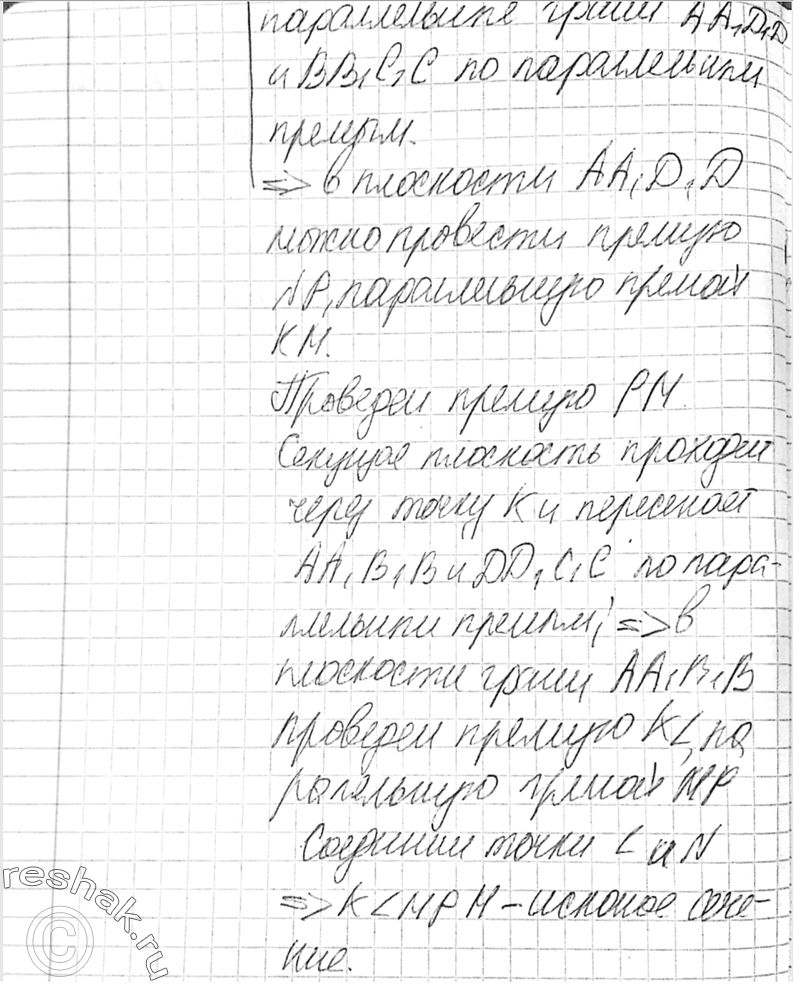 параллельные грани AA₁D₁D
и BB₁C₁C по параллельным
прямым.
=> в плоскости AA₁D₁D
можно провести прямую
NP, параллельную прямой
KM.
Проведем прямую PM.
Секущая плоскость проходит
через точку K и пересекает
AA₁B₁B и DD₁C₁C по пара-
ллельным прямым, => в
плоскости грани AA₁B₁B
проведем прямую KL, па
ралельную прямой MP
Соединим точки L и N
=> KLNPM – искомое сече-
ние.
reshak.ru
©